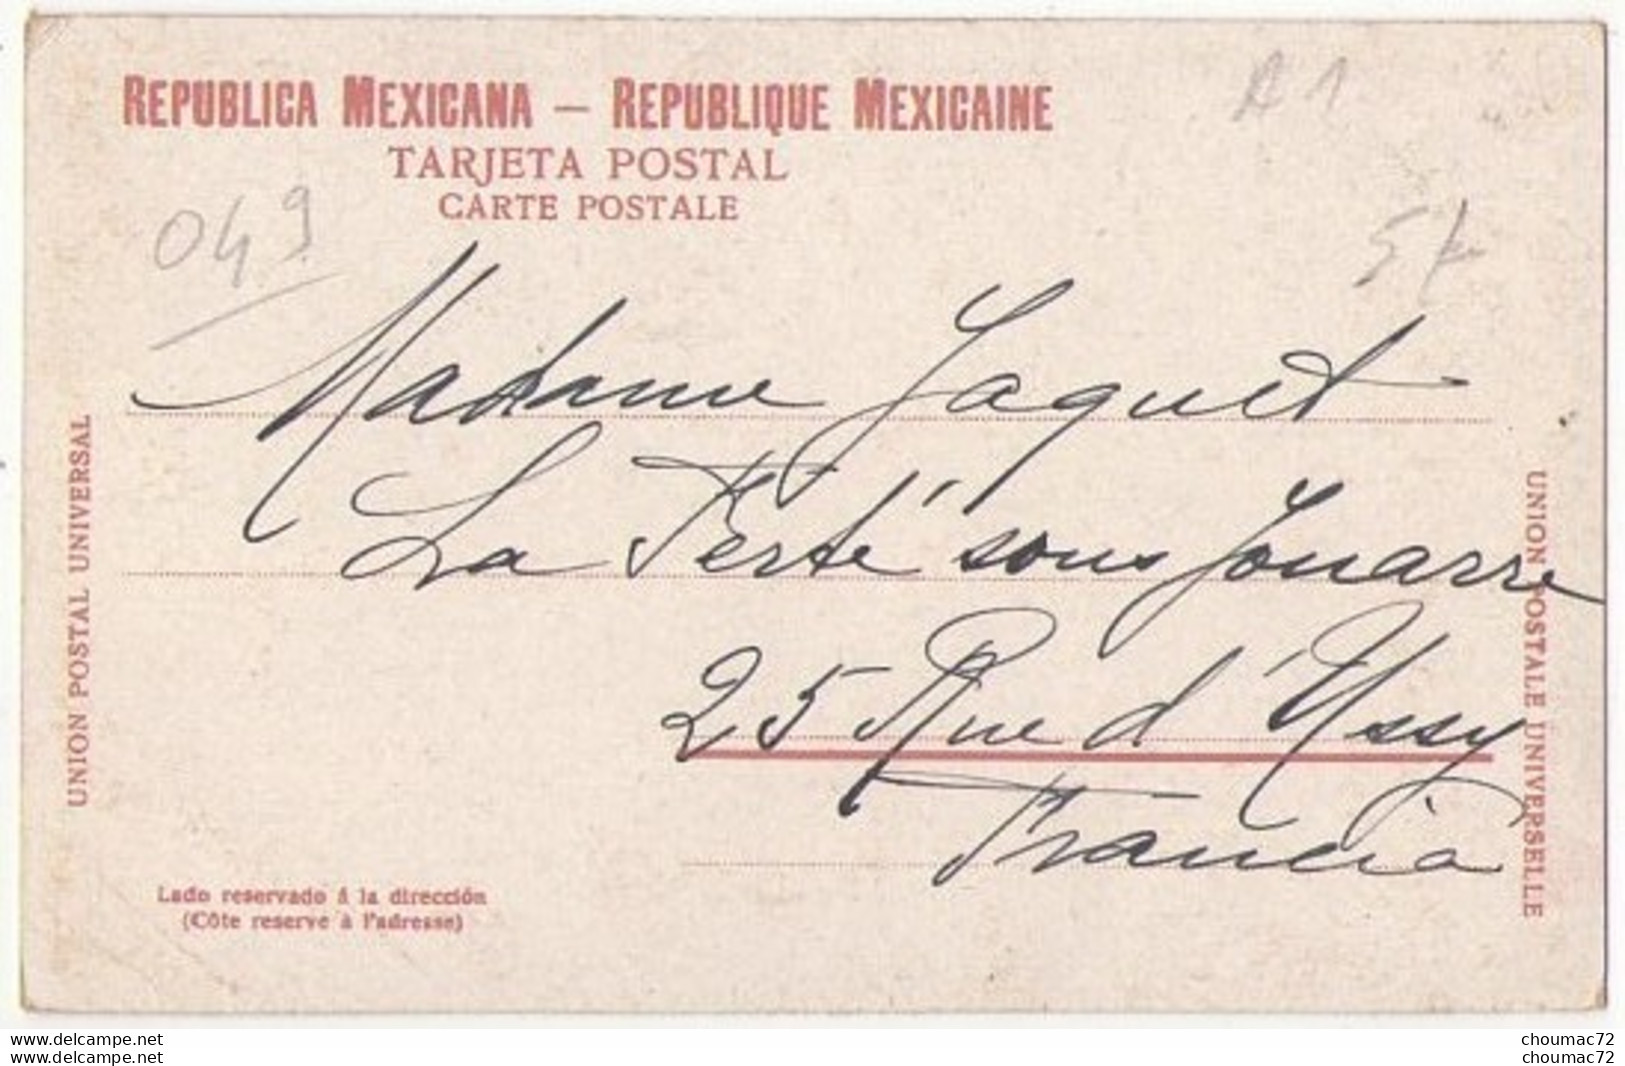 REPUBLICA MEXICANA — REPUBLIQUE MEXICAINE
TARJETA POSTAL
CARTE POSTALE
R 1
049
5
Madame Jaquet
La Ferté sous Jouarre
25 Rue d'Ussy
Francia
UNION POSTAL UNIVERSAL
UNION POSTALE UNIVERSELLE
Lado reservado á la dirección
(Côte reserve à l'adresse)
delcampe.net
delcampe.net
choumac72
choumac72